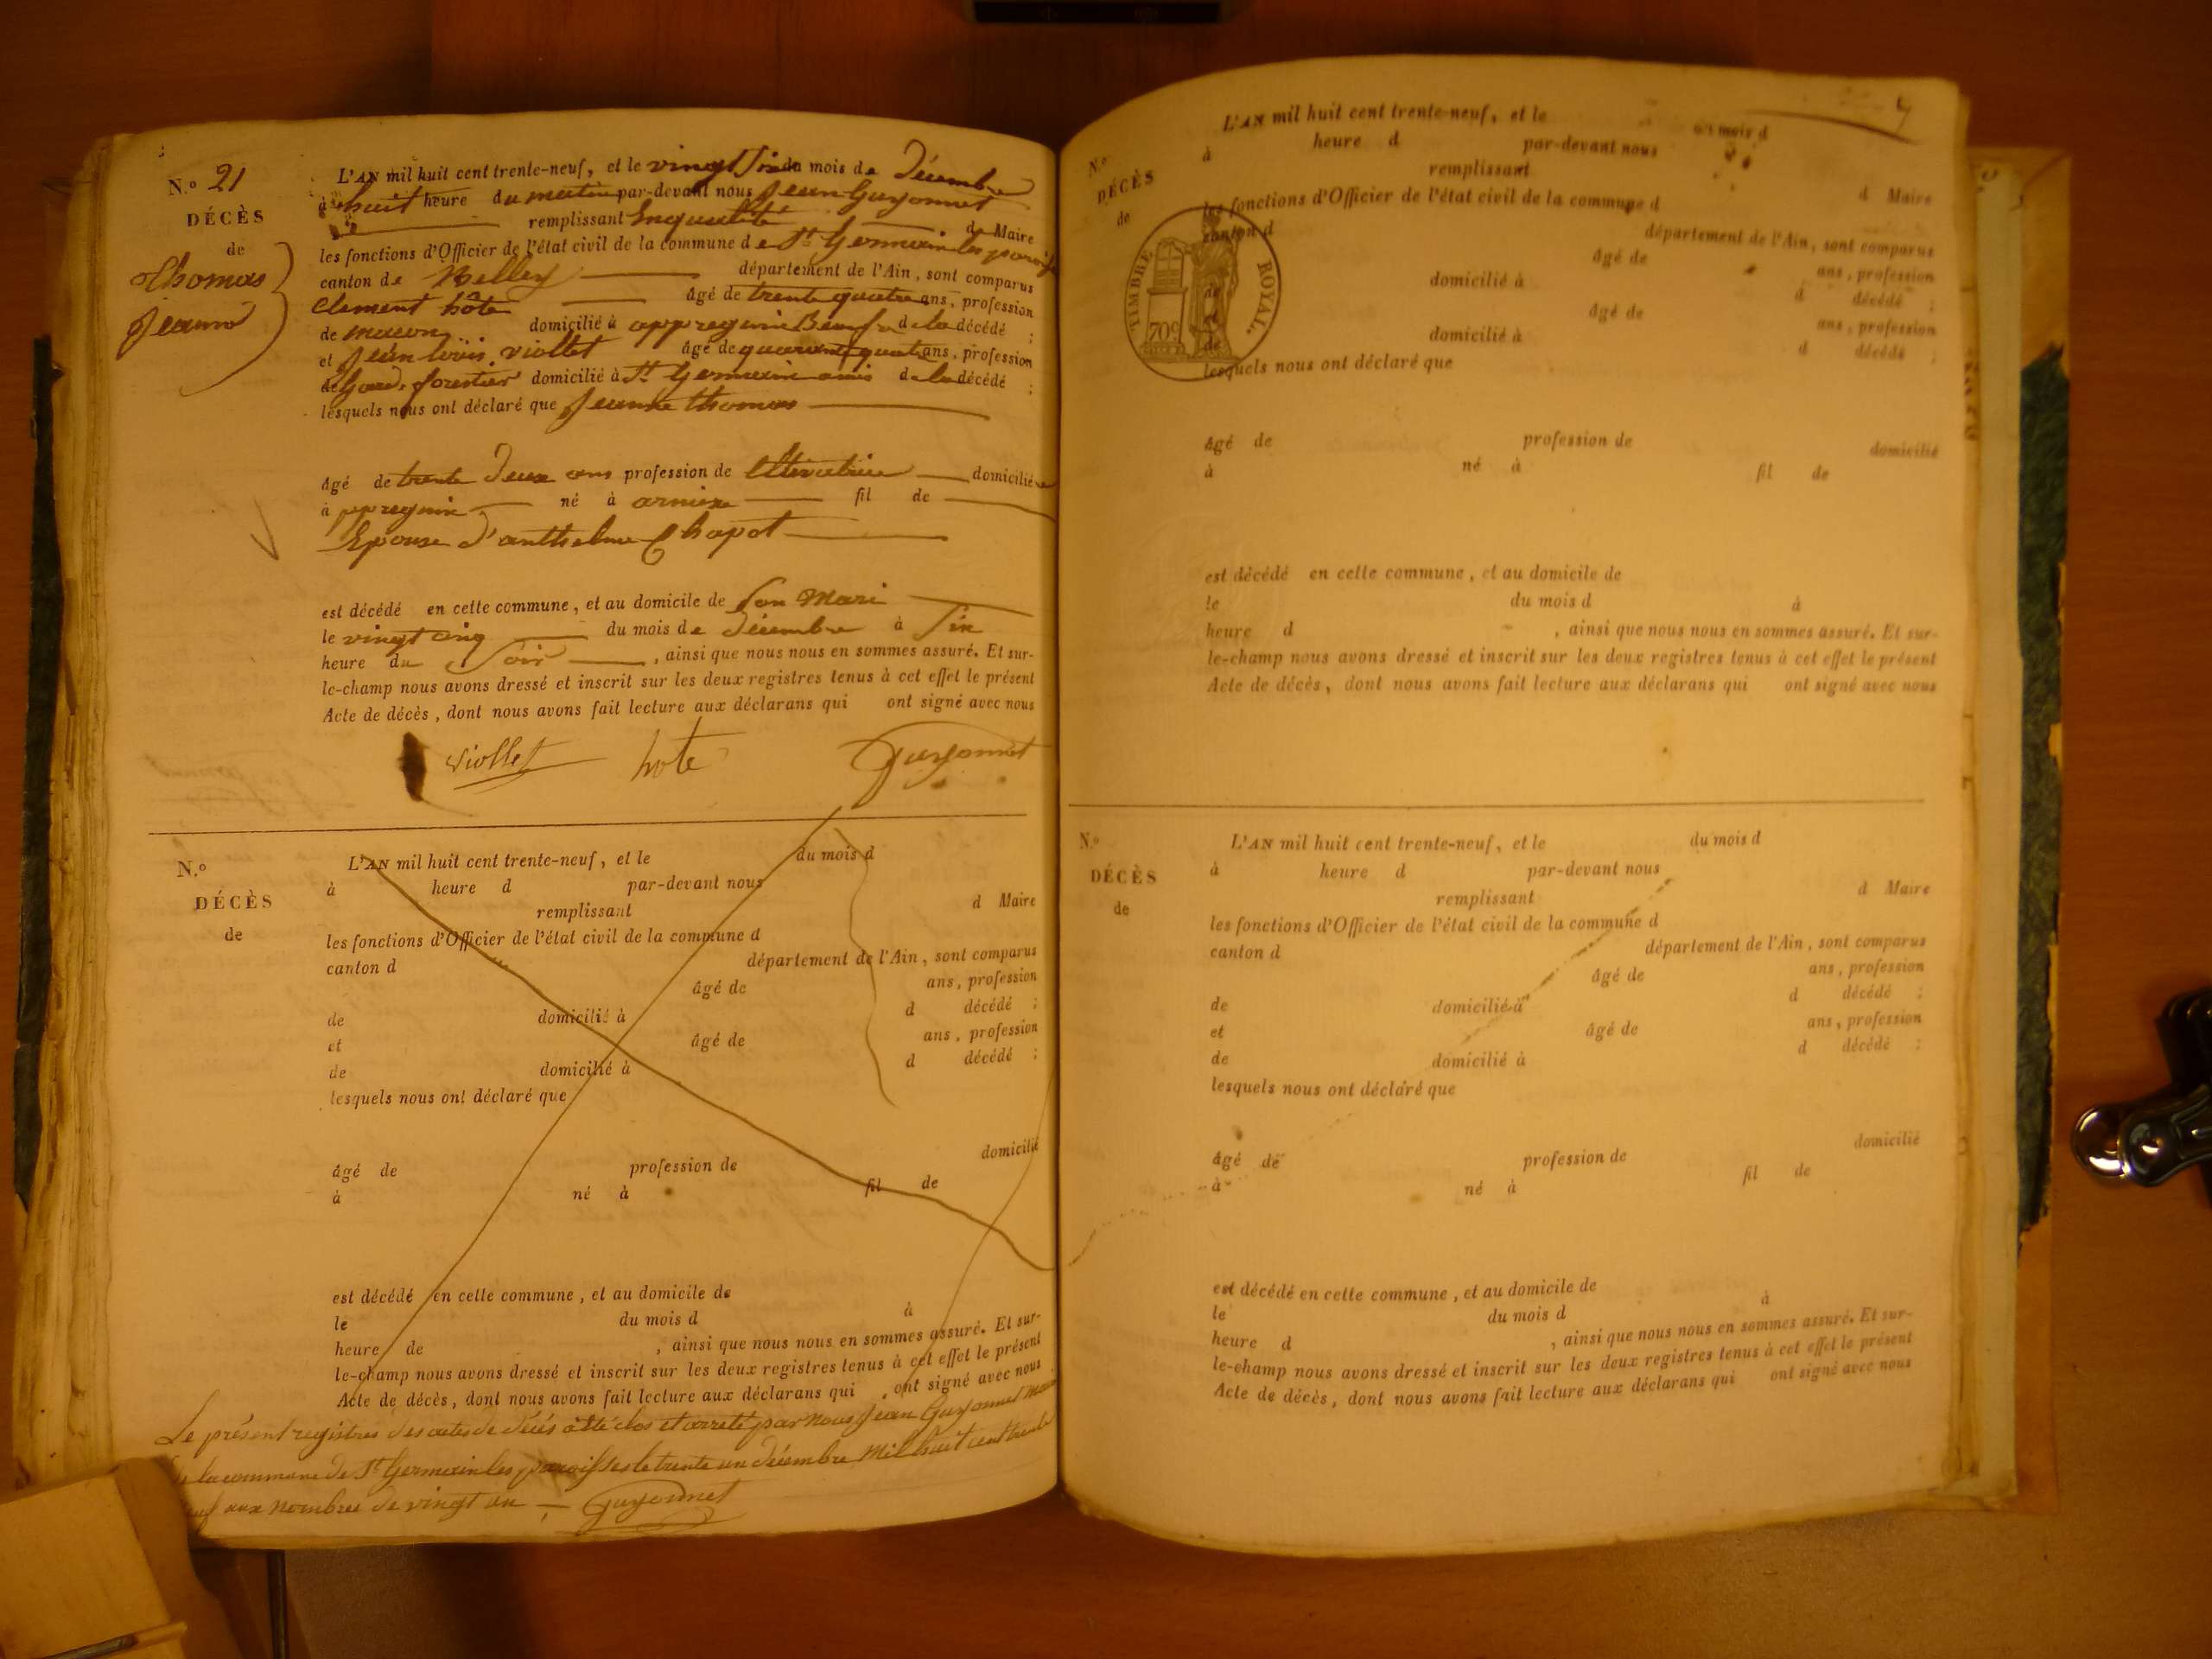 N.o 21
DÉCÈS
de
Thomas
Jeanne
L'AN mil huit cent trente-neuf, et le vingt Six du mois de Décembre
à huit heure du matin par-devant nous Jean Guyonnet
remplissant Enqualité d Maire
les fonctions d'Officier de l'état civil de la commune de St Germain les parois
canton de Belley département de l'Ain, sont comparus
Clement hôte âgé de trente quatre ans, profession
de macon domicilié à appregnin de la décédé ;
et Jean Loüis viollet âgé de quarante quatre ans, profession
de Garde forestier domicilié à St Germain amis de la décédé ;
lesquels nous ont déclaré que Jeanne thomas
âgé de trente deux ans profession de domicilié
à appregnin né à fil de
Epouse d'anthelme Chapot
est décédé en cette commune, et au domicile de Son Mari
le vingt cinq du mois de Décembre à Six
heure du Soir, ainsi que nous nous en sommes assuré. Et sur-
le-champ nous avons dressé et inscrit sur les deux registres tenus à cet effet le présent
Acte de décès, dont nous avons fait lecture aux déclarans qui ont signé avec nous
viollet hote Guyonnet
N.o
DÉCÈS
de
L'AN mil huit cent trente-neuf, et le du mois d
à heure d par-devant nous
remplissant d Maire
les fonctions d'Officier de l'état civil de la commune d
canton d département de l'Ain, sont comparus
âgé de ans, profession
de domicilié à d décédé ;
et âgé de ans, profession
de domicilié à d décédé ;
lesquels nous ont déclaré que
âgé de profession de domicilié
à né à fil de
est décédé en cette commune, et au domicile de
le du mois d à
heure de , ainsi que nous nous en sommes assuré. Et sur-
le-champ nous avons dressé et inscrit sur les deux registres tenus à cet effet le présent
Acte de décès, dont nous avons fait lecture aux déclarans qui ont signé avec nous
Le présent registres des actes de décés a été clos et arreté par nous Jean Guyonnet maire
de la commune de St Germain les paroisses le trente un décembre Mil huit cent trente
neuf aux nombres de vingt un Guyonnet
N.o
DÉCÈS
de
L'AN mil huit cent trente-neuf, et le du mois d
à heure d par-devant nous
remplissant d Maire
les fonctions d'Officier de l'état civil de la commune d
canton d département de l'Ain, sont comparus
âgé de ans, profession
de domicilié à d décédé ;
âgé de ans, profession
de domicilié à d décédé ;
lesquels nous ont déclaré que
TIMBRE ROYAL.
70c
âgé de profession de domicilié
à né à fil de
est décédé en cette commune, et au domicile de
le du mois d à
heure d , ainsi que nous nous en sommes assuré. Et sur-
le-champ nous avons dressé et inscrit sur les deux registres tenus à cet effet le présent
Acte de décès, dont nous avons fait lecture aux déclarans qui ont signé avec nous
N.o
DÉCÈS
de
L'AN mil huit cent trente-neuf, et le du mois d
à heure d par-devant nous
remplissant d Maire
les fonctions d'Officier de l'état civil de la commune d
canton d département de l'Ain, sont comparus
âgé de ans, profession
de domicilié à d décédé ;
et âgé de ans, profession
de domicilié à d décédé ;
lesquels nous ont déclaré que
âgé de profession de domicilié
à né à fil de
est décédé en cette commune, et au domicile de
le du mois d à
heure d , ainsi que nous nous en sommes assuré. Et sur-
le-champ nous avons dressé et inscrit sur les deux registres tenus à cet effet le présent
Acte de décès, dont nous avons fait lecture aux déclarans qui ont signé avec nous